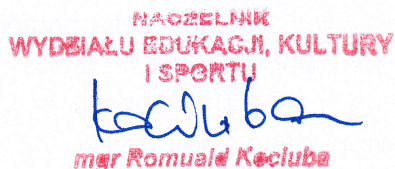 NACZELNIK
WYDZIAŁU EDUKACJI, KULTURY
I SPORTU
Kociuba
mgr Romuald Kociuba